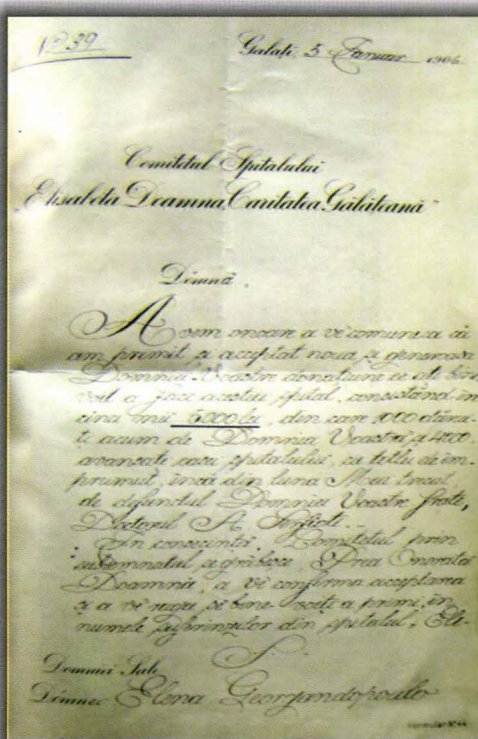 No 39
Galați, 5 Januar 1906
Comitetul Spitalului
"Elisabeta Doamna, Caritatea Gălățeană"
Dómnă,
Avem onoare a vĕ comunica că
am primit și acceptat noua și generoasa
Domnia-Voastre donațiune ce ați bine
voit a face acestui spital, constând în
cinci mii 5000 lei, din care 1000 dărui-
ți acum de Domnia Voastră și 4000
avansați spitalului, cu titlu de îm-
prumut, încă din luna Mai trecut
de defunctul Domniei Voastre frate,
Doctorul A. Serfioti.
În consecință Comitetul prin
subsemnatul se grăbesce, Prea Onorată
Doamnă, a vĕ confirma acceptarea
și a vĕ ruga se bine-voiți a primi, în
numele suferinzilor din spitalul, Eli-
Domniei Sale
Dómnei Elena Georgandopoulo